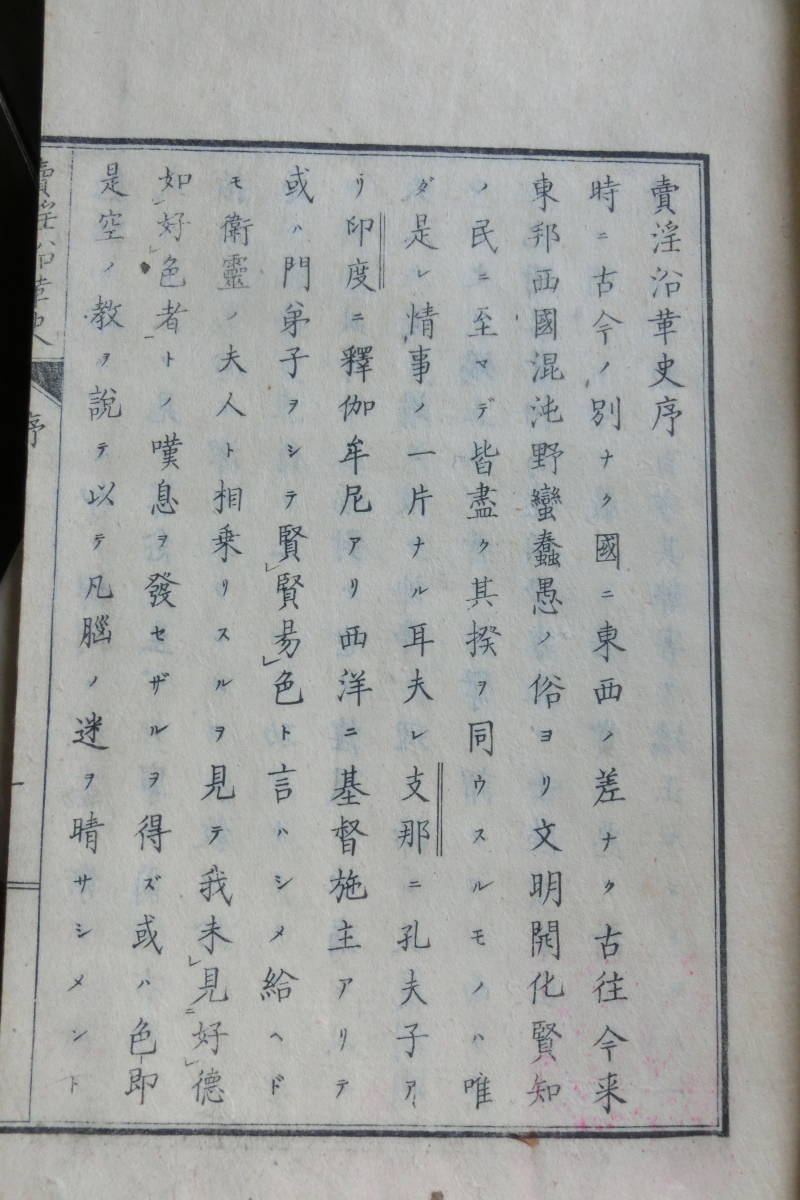 賣淫沿革史序
時ニ古今ノ別ナク國ニ東西ノ差ナク古往今来
東邦西國混沌野蠻蠢愚ノ俗ヨリ文明開化賢知
ノ民ニ至マデ皆盡ク其揆ヲ同ウスルモノハ唯
ダ是レ情事ノ一片ナル耳夫レ支那ニ孔夫子ア
リ印度ニ釋伽牟尼アリ西洋ニ基督施主アリテ
或ハ門弟子ヲシテ賢賢易色ト言ハシメ給ヘド
モ衛靈ノ夫人ト相乗リスルヲ見テ我未見好德
如好色者トノ嘆息ヲ發セザルヲ得ズ或ハ色即
是空ノ教ヲ說テ以テ凡腦ノ迷ヲ晴サシメント
賣淫沿革史
序
一